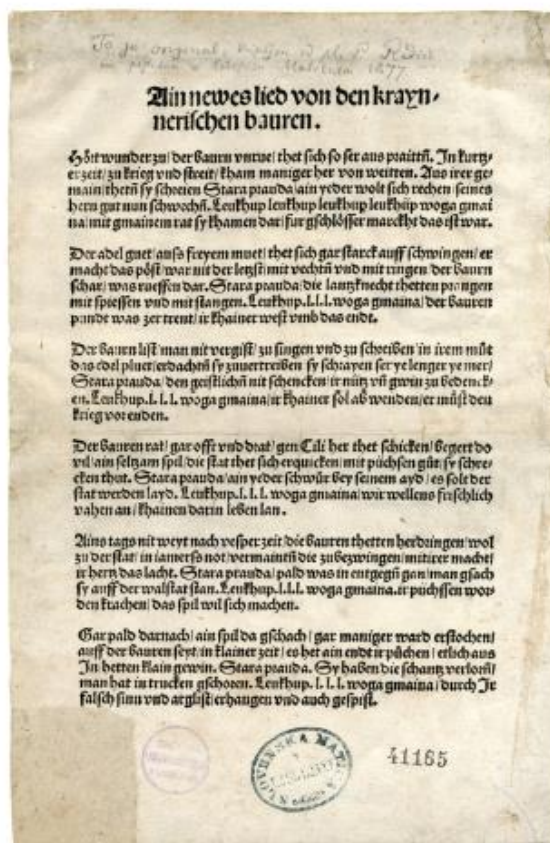 Ain newes lied von den krayn-
nerischen bauren.
Hört wunder zu / der baurn unrue / thet sich so ser aus praittñ. In kurtz-
er zeit / zu krieg vnd streit / kham maniger her von weitten. Aus irer ge-
main / thetñ sy schreien Stara prauda / ain yeder wolt sich rechen / seines
hern gut nun schwochñ. Leukhup leukhup leukhup leukhup woga gmai
na / mit gmainem rat sy khamen dar / fur gschlösser marckht das ist war.
Der adel guet / auss freyem muet / thet sich gar starck auff schwingen / er
macht das pöst / war nit der letzst / mit vechtñ vnd mit ringen / der baurn
schar / was rueffen dar. Stara prauda / die lantzknecht thetten prangen
mit spiessen vnd mit stangen. Leukhup. l. l. l. woga gmaina / der bauren
pundt was zertrent / ir khainer west vmb das endt.
Der baurn list / man nit vergist / zu singen vnd zu schreiben / in irem müt
das edel pluet / erdachtñ sy zuuertreiben / sy schrayen ser ye lenger ye mer /
Stara prauda / den geistlichñ nit schencken / ir nütz vñ gwin zu bedenck-
en. Leukhup. l. l. l. woga gmaina / ir khainer sol ab wenden / er müst den
krieg vor enden.
Der bauren rat / gar offt vnd drat / gen Cili her thet schicken / begert do
vil / ain seltzam spil / die stat thet sich erquicken / mit püchsen güt / sy schre-
cken thut. Stara prauda / ain yeder schwür bey seinem ayd / es solt der
stat werden layd. Leukhup. l. l. l. woga gmaina / wir wellens frischlich
vahen an / khainen darin leben lan.
Ains tags nit weyt nach vesper zeit / die bauren thetten herdringen / wol
zu der stat / in iamerss not / vermaintñ die zu bezwingen / mit irer macht /
ir hertz das lacht. Stara prauda / pald was in entgegñ gan / man gsach
sy auff der walstat stan. Leukhup. l. l. l. woga gmaina. ir püchssen wor-
den krachen / das spil wil sich machen.
Gar pald darnach / ain spil da gschach / gar maniger ward erstochen /
auff der bauren seyt / in klainer zeit / es het ain endt ir püchen / etlich aus
In hetten klain gewin. Stara prauda. Sy haben die schantz verlorñ /
man hat in trucken gschoren. Leukhup. l. l. l. woga gmaina / durch Ir
falsch sinn vnd arglist / erhangen vnd auch gespist.
SLOVENSKA MATICA
41165